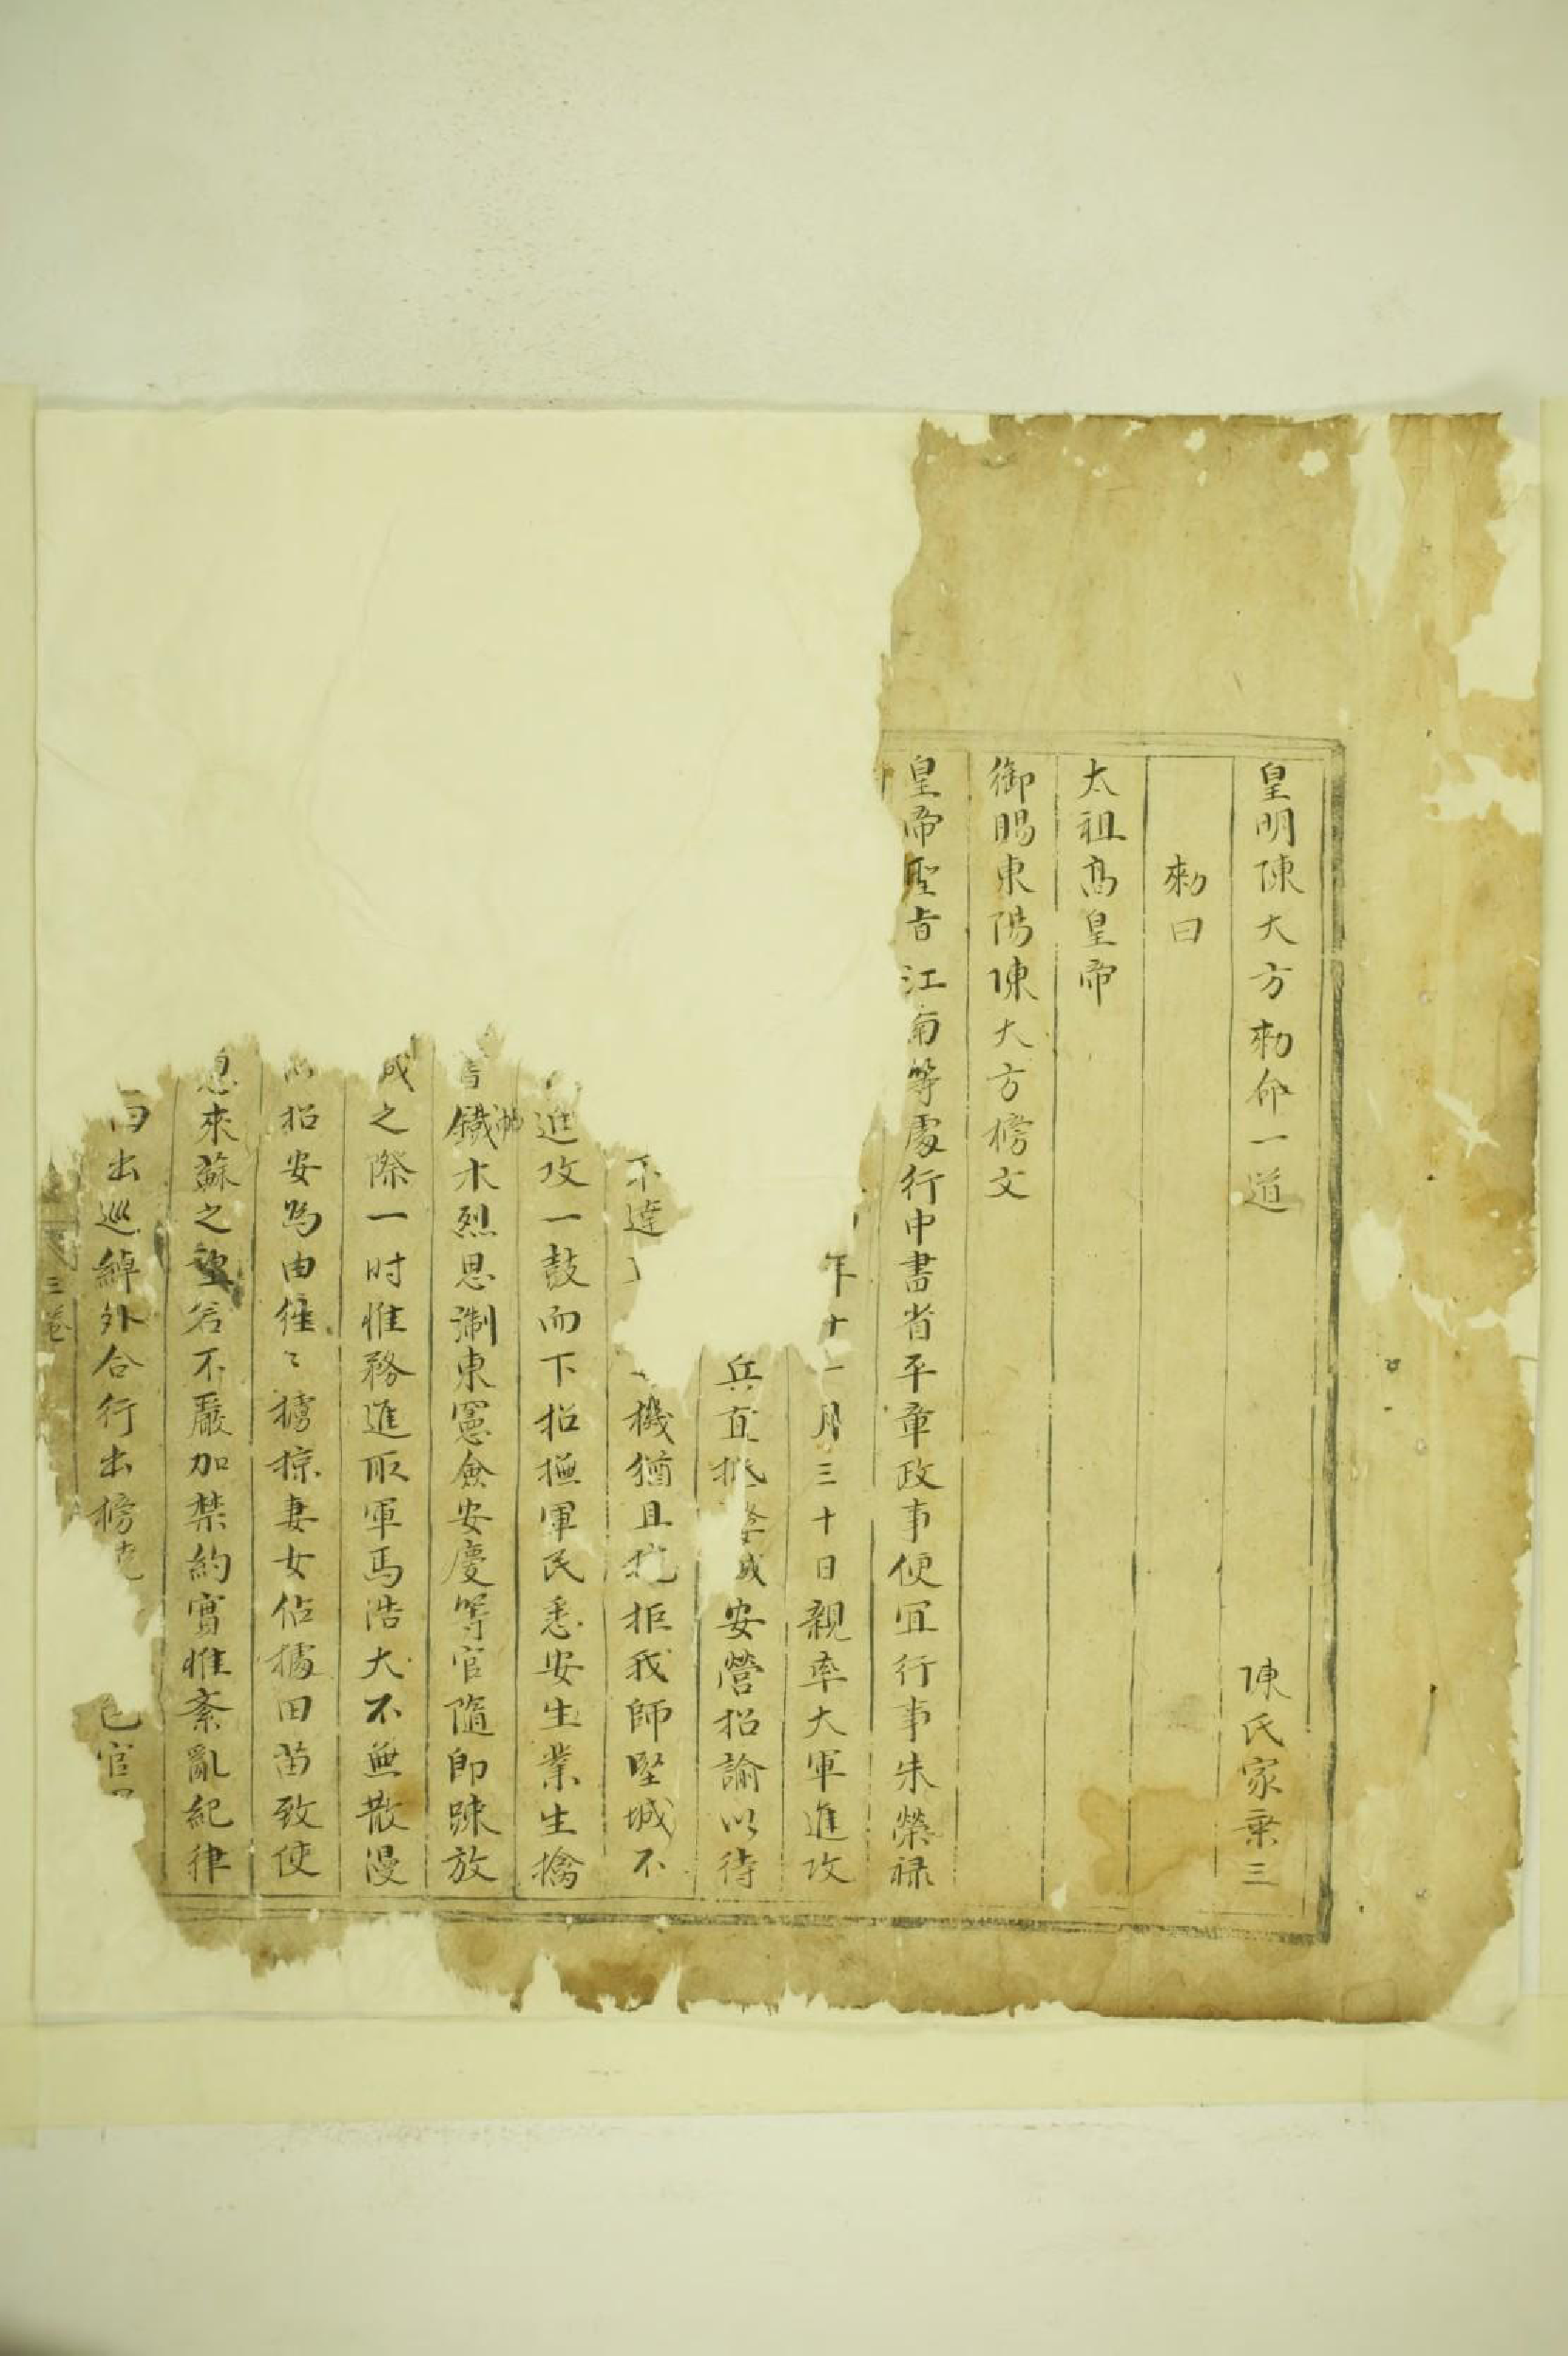 皇明陳大方勅命一道 陳氏家乗三
勅曰
太祖髙皇帝
御賜東陽陳大方榜文
皇帝聖旨江南等處行中書省平章政事便宜行事朱榮禄
年十一月三十日親率大軍進攻
兵直抵 城安營招諭以待
不達 機猶且抗拒我師堅城不
進攻一鼓而下招撫軍民悉安生業生擒
帖鐵木烈思浙東憲僉安慶等官隨即踈放
成之際一时惟務進取軍馬浩大不無散漫
招安爲由徃〻擄掠妻女佔據田苗致使
息來蘇之望若不嚴加禁約實惟紊亂紀律
出巡綽外合行出榜 官
三卷